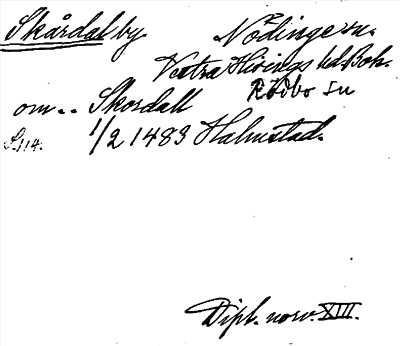 Skårdalby Nödinge sn.
Västra Hisings hd. Boh.
Rödbo sn
om .. Skordall
S. 114. 1/2 1483 Halmstad.
Dipl. norv. XIII.